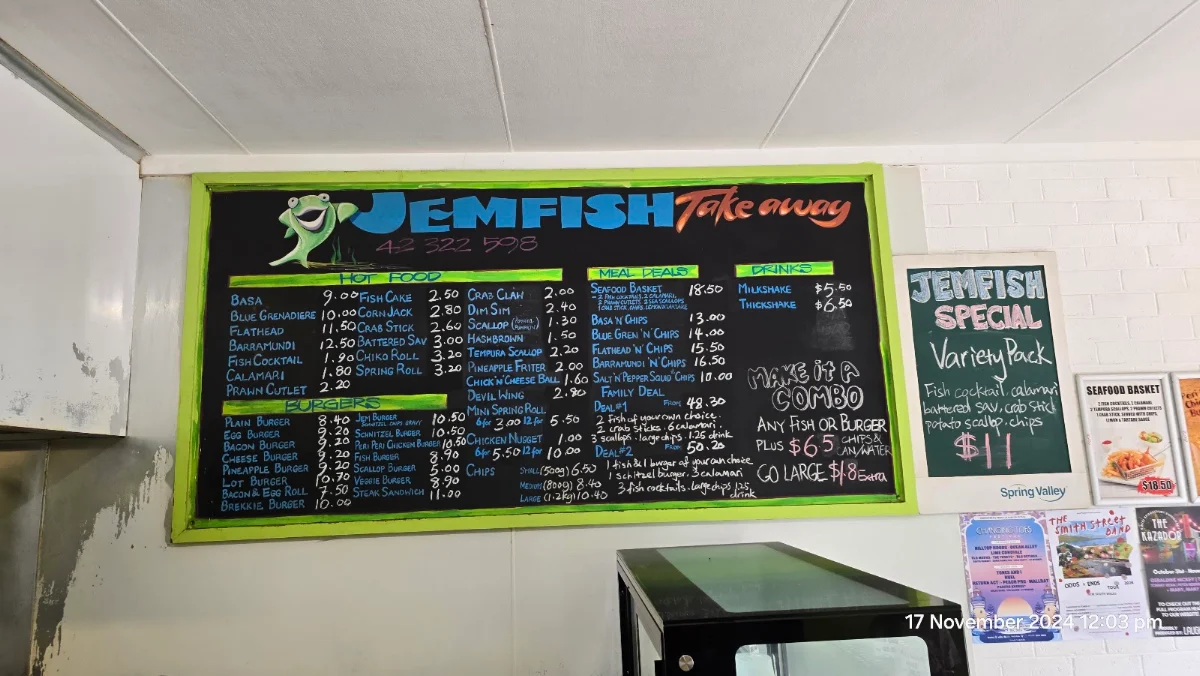 JEMFISH Take away
42 322 598
HOT FOOD
BASA 9.00
BLUE GRENADIERE 10.00
FLATHEAD 11.50
BARRAMUNDI 12.50
FISH COCKTAIL 1.90
CALAMARI 1.80
PRAWN CUTLET 2.20
FISH CAKE 2.50
CORN JACK 2.80
CRAB STICK 2.60
BATTERED SAV 3.00
CHIKO ROLL 3.20
SPRING ROLL 3.20
CRAB CLAW 2.00
DIM SIM 2.40
SCALLOP 1.30
HASHBROWN 1.50
TEMPURA SCALLOP 2.20
PINEAPPLE FRITER 2.00
CHICK'N'CHEESE BALL 1.60
DEVIL WING 2.80
MINI SPRING ROLL
6 for 3.00 12 for 5.50
CHICKEN NUGGET 1.00
6 for 5.50 12 for 10.00
CHIPS SMALL (500g) 6.50
MEDIUM (800g) 8.40
LARGE (1.2kg) 10.40
BURGERS
PLAIN BURGER 8.40
EGG BURGER 9.20
BACON BURGER 9.20
CHEESE BURGER 9.20
PINEAPPLE BURGER 9.20
LOT BURGER 10.70
BACON & EGG ROLL 7.50
BREKKIE BURGER 10.00
JEM BURGER 10.50
SCHNITZEL BURGER 10.50
PERI PERI CHICKEN BURGER 10.50
FISH BURGER 8.90
SCALLOP BURGER 5.00
VEGGIE BURGER 8.90
STEAK SANDWICH 11.00
MEAL DEALS
SEAFOOD BASKET 18.50
BASA 'N' CHIPS 13.00
BLUE GREN 'N' CHIPS 14.00
FLATHEAD 'N' CHIPS 15.50
BARRAMUNDI 'N' CHIPS 16.50
SALT 'N' PEPPER SQUID CHIPS 10.00
FAMILY DEAL
DEAL #1 FROM 48.30
2 fish of your own choice.
2 crab sticks. 6 calamari.
3 scallops. large chips. 1.25 drink
DEAL #2 FROM 50.20
1 fish & 1 burger of your own choice
1 schitzel burger. 3 calamari
3 fish cocktails. large chips 1.25
drink
DRINKS
MILKSHAKE $5.50
THICKSHAKE $6.50
MAKE IT A
COMBO
ANY FISH OR BURGER
PLUS $6.5 CHIPS &
CAN/WATER
GO LARGE $1.8 EXTRA
JEMFISH
SPECIAL
Variety Pack
Fish cocktail, calamari
battered sav, crab stick
potato scallop, chips
$11
Spring Valley
SEAFOOD BASKET
2 FISH COCKTAILS, 2 CALAMARI,
$18.50
THE SMITH STREET
BAND
ODDS & ENDS
TOUR
THE
KAZADOR
17 November 2024 12:03 pm